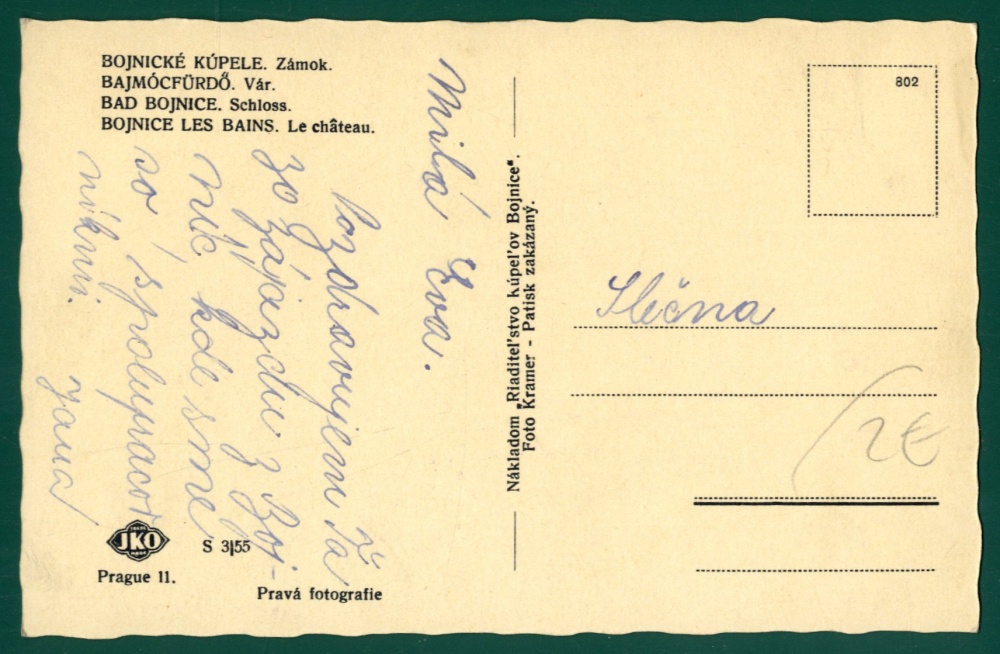 BOJNICKÉ KÚPELE. Zámok.
BAJMÓCFÜRDŐ. Vár.
BAD BOJNICE. Schloss.
BOJNICE LES BAINS. Le château.
Milá Eva.
Pozdravujem Ťa
zo zájazdu z Boj-
níc, kde sme
so spolupracov
níkmi.
Jana
JKO
S 3/55
Prague 11.
Pravá fotografie
Nákladom „Riaditeľstvo Kúpeľov Bojnice“.
Foto Kramer - Patisk zakázaný.
802
Slečna
2€